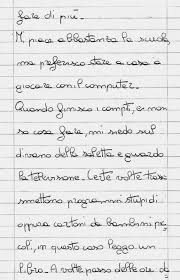 fare di più.
Mi piace abbastanza la scuola,
ma preferisco stare a casa a
giocare con il computer.
Quando finisco i compiti, e non
so cosa fare, mi siedo sul
divano della saletta e guardo
la televisione. Certe volte tra-
smettono programmi stupidi
oppure cartoni da bambini pic
coli, in questo caso leggo un
libro. A volte passo delle ore da